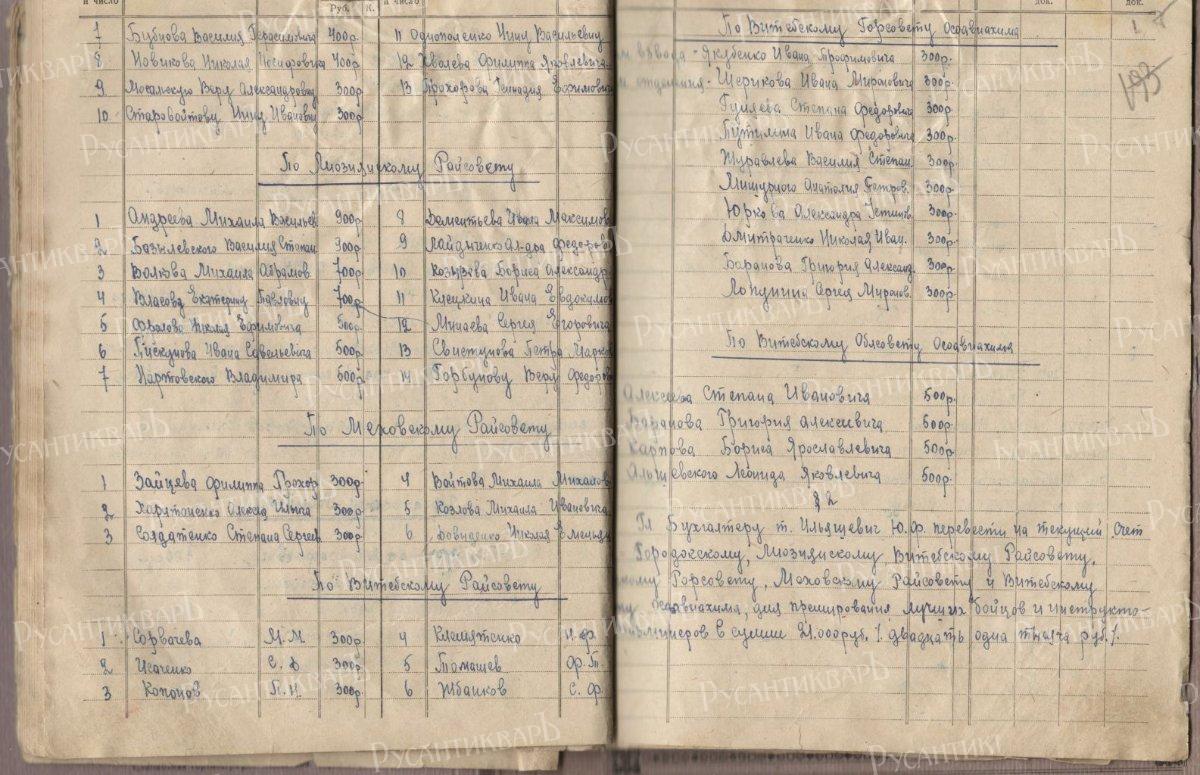 и число Руб. К. и число
7 Бубнова Василия Герасимовича 400р 11 Однополенко Нину Васильевну
8 Новикова Николая 400р. 12 Хвалева Филиппа Яковлевича
9 Мосальскую Веру Александровну 300р 13 Прохорова Геннадия Ефимовича
10 Старовойтову Нину Ивановну 300р
По Лиознянскому Райсовету
1 Андреева Михаила Васильев 900р 8 Дементьева Ивана Максимов
2 Василия Степан 900р. 9 Ал-дра Федоров
3 Волкова Михаила Абрамов. 700р. 10 Бориса Александр
4 Власову Екатерину Павловну 700р 11 Клецкина Ивана Евдокимов
5 Ефимовича 500р. 12 Минаева Сергея Егоровича
6 Пискунова Ивана Савельевича 500р 13 Свистунова Петра Марко
7 Нартовского Владимира 500р 14 Горбунову Веру Федоров
По Меховскому Райсовету
1 Зайцева Филиппа Прохор 300р 4 Войтова Михаила Михайлов
2 Харитоненко Ильича 300р 5 Козлова Михаила Ивановича
3 Солдатенко Степана Сергеев 300р 6 Николая
По Витебскому Райсовету
1 Сорвачева М.М. 300р 4 Н.Ф.
2 Исаченко С. 300р 5 Томашев Ф.Т.
3 П.Н. 300р 6 Жбанков С. Ф.
док. док.
195
По Витебскому Горсовету Осоавиахима
взвода - Якубенко Ивана Трофимовича 300р.
отделения - Шерикова Ивана Мироновича 300р.
Гуляева Степана Федоровича 300р
Путилина Ивана Федоровича 300р.
Журавлева Василия Степан. 300р.
Мишурного Анатолия Петров. 300р.
Юркова Александра 300р.
Дмитраченко Николая Иван. 300р.
Баранова Григория Александ. 300р
Лопунина Сергея Миронов. 300р.
По Витебскому Облсовету Осоавиахима
Алексеева Степана Ивановича 500р.
Баранова Григория Алексеевича 500р.
Карпова Бориса Ярославлевича 500р.
Леонида Яковлевича 500р.
§ 2
Гл Бухгалтеру т. Ильяшевич Ю.Ф. перевести на текущий счет
Городокскому, Лиознянскому Витебскому Райсовету,
Горсовету, Меховскому Райсовету и Витебскому
Осоавиахима, для премирования лучших бойцов и инструкто-
в сумме 21.000руб. /. двадцать одна тысяча руб. /.
РусантикварЪ